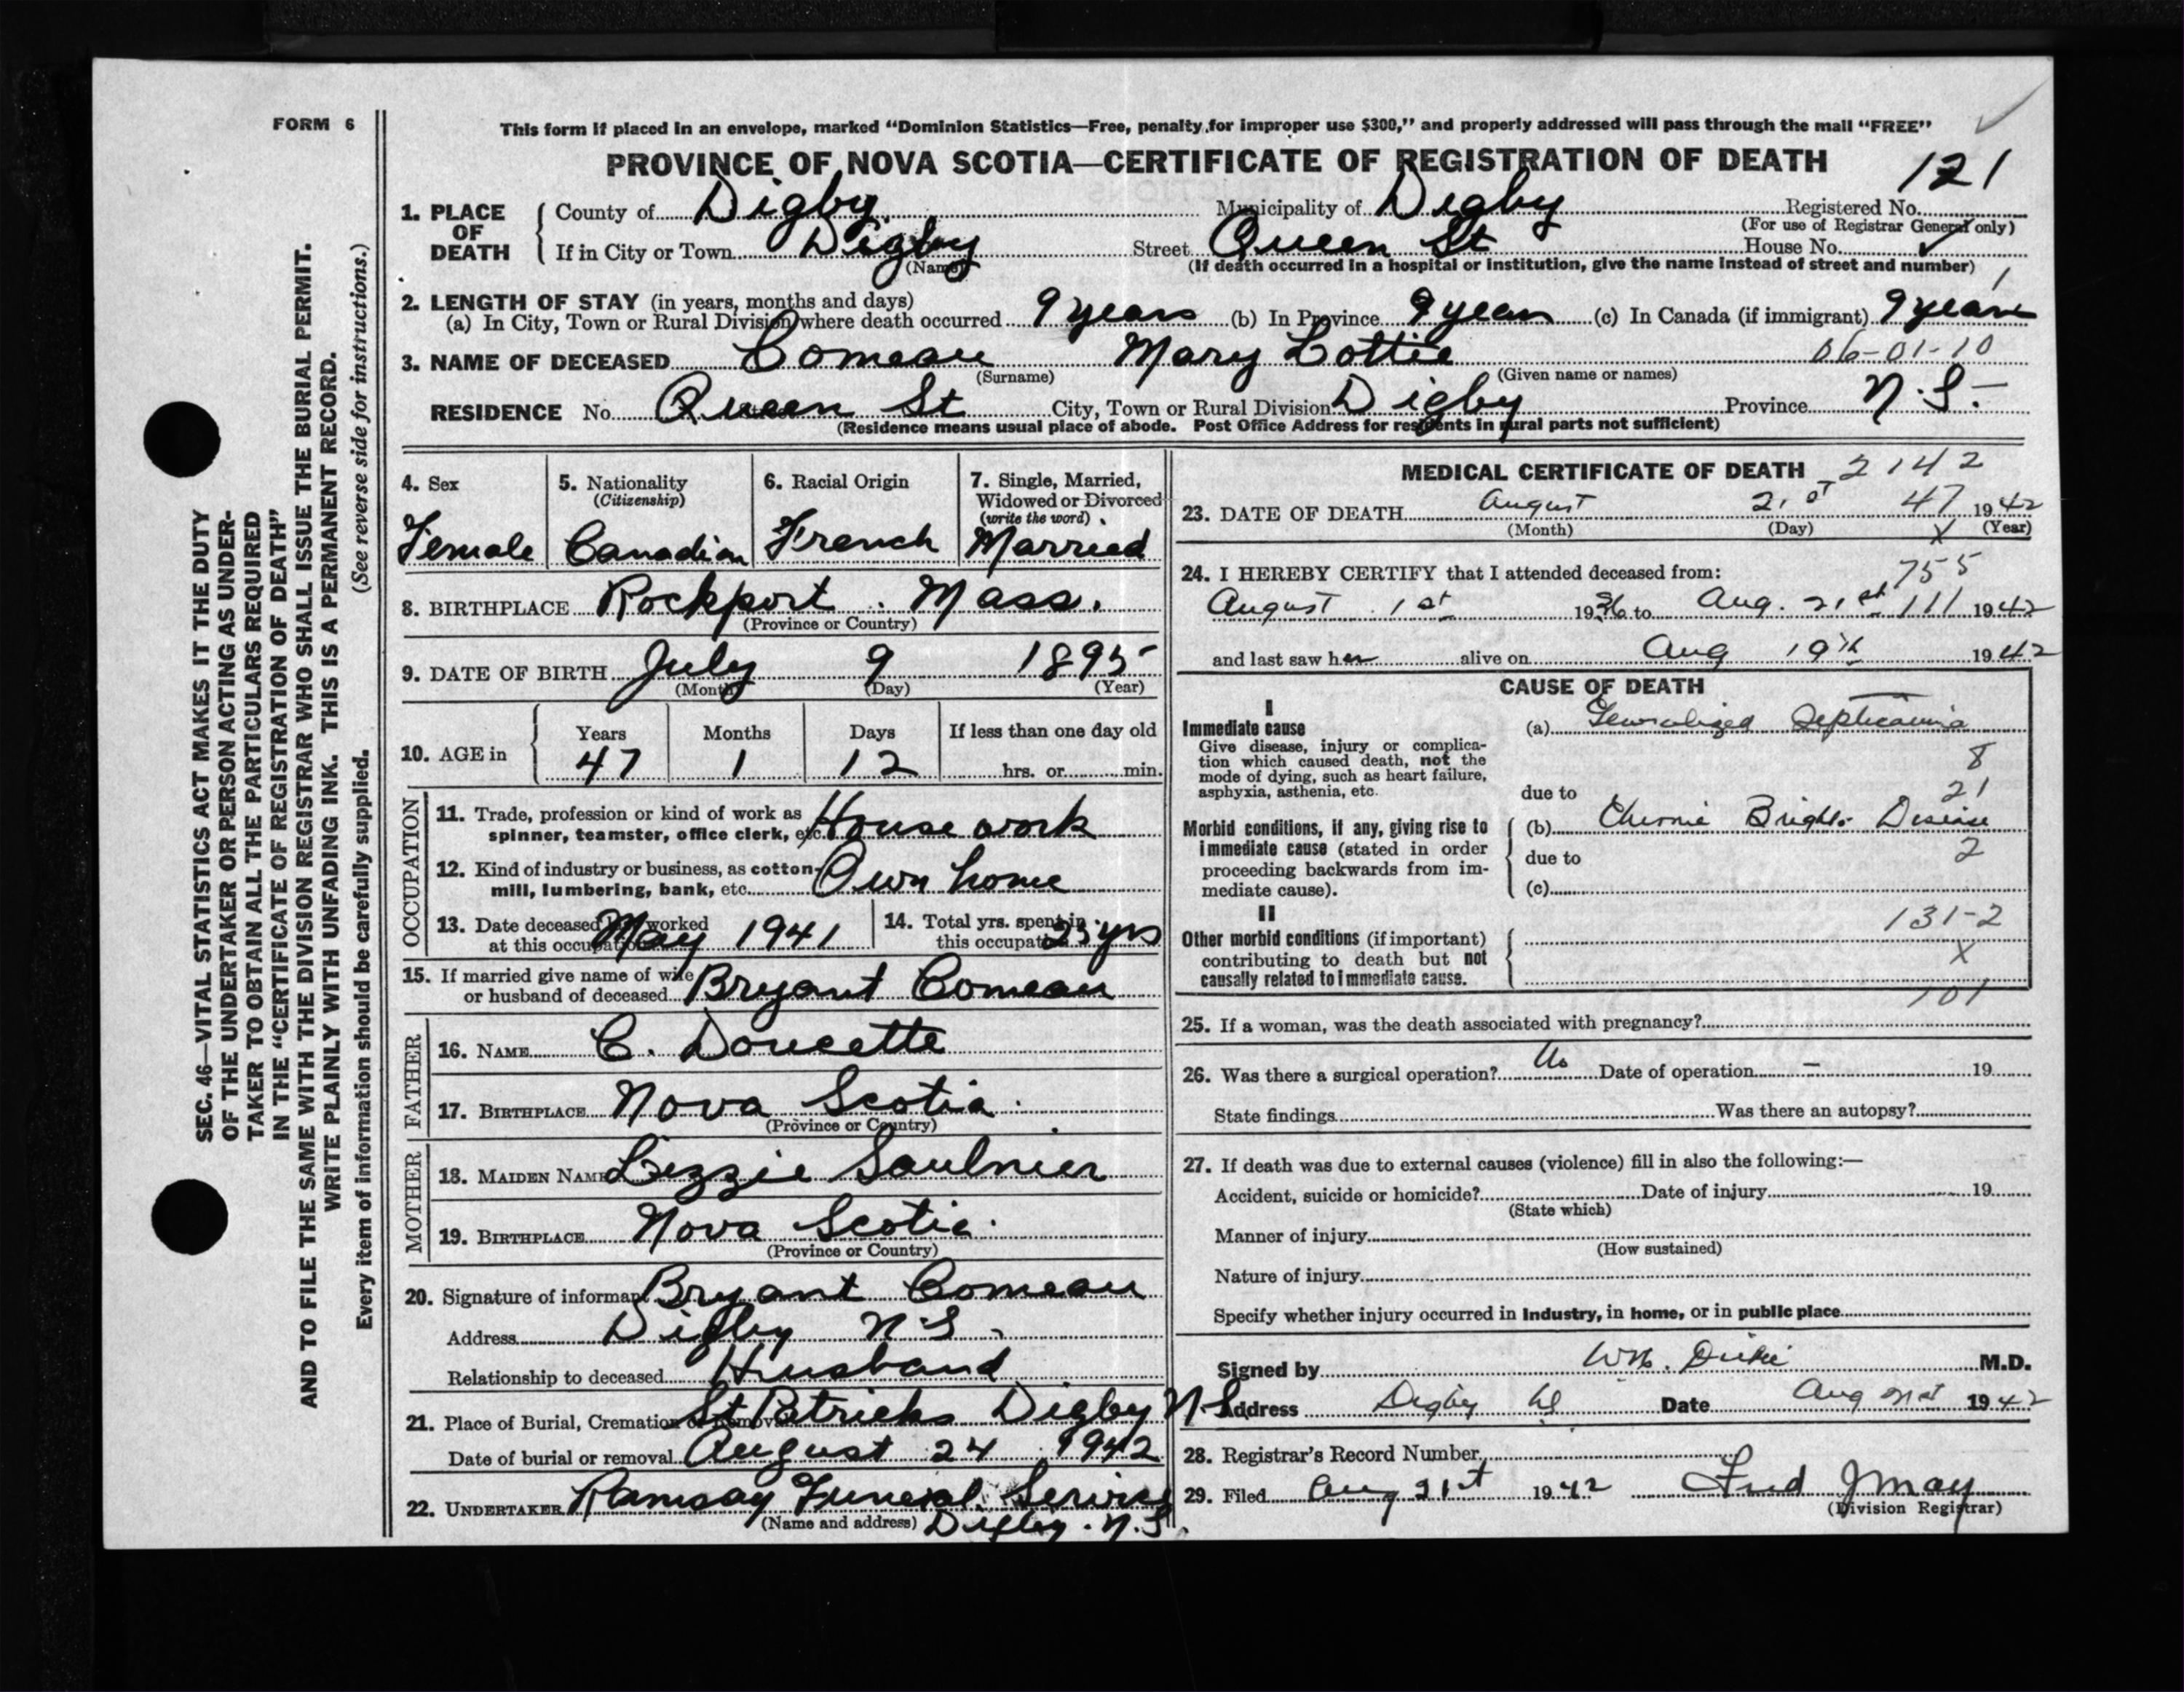 FORM 6
This form if placed in an envelope, marked "Dominion Statistics—Free, penalty for improper use $300," and properly addressed will pass through the mail "FREE"
PROVINCE OF NOVA SCOTIA—CERTIFICATE OF REGISTRATION OF DEATH
121
1. PLACE OF DEATH
County of Digby Municipality of Digby Registered No.
(For use of Registrar General only)
If in City or Town Digby Street Queen St House No.
(Name)
(If death occurred in a hospital or institution, give the name instead of street and number)
2. LENGTH OF STAY (in years, months and days)
(a) In City, Town or Rural Division where death occurred 9 years (b) In Province 9 years (c) In Canada (if immigrant) 9 years
3. NAME OF DECEASED Comeau Mary Lottie 06-01-10
(Surname) (Given name or names)
RESIDENCE No. Queen St City, Town or Rural Division Digby Province N.S.
(Residence means usual place of abode. Post Office Address for residents in rural parts not sufficient)
4. Sex
Female
5. Nationality
(Citizenship)
Canadian
6. Racial Origin
French
7. Single, Married, Widowed or Divorced
(write the word)
Married
8. BIRTHPLACE Rockport. Mass.
(Province or Country)
9. DATE OF BIRTH July 9 1895
(Month) (Day) (Year)
10. AGE in Years Months Days If less than one day old
47 1 12 hrs. or min.
OCCUPATION
11. Trade, profession or kind of work as
spinner, teamster, office clerk, etc. House work
12. Kind of industry or business, as cotton
mill, lumbering, bank, etc. Own home
13. Date deceased last worked
at this occupation May 1941
14. Total yrs. spent in
this occupation 25 yrs
15. If married give name of wife
or husband of deceased Bryant Comeau
FATHER
16. NAME C. Doucette
17. BIRTHPLACE Nova Scotia
(Province or Country)
MOTHER
18. MAIDEN NAME Lizzie Saulnier
19. BIRTHPLACE Nova Scotia
(Province or Country)
20. Signature of informant Bryant Comeau
Address Digby N S
Relationship to deceased Husband
21. Place of Burial, Cremation or Removal St Patricks Digby N S
Date of burial or removal August 24 1942
22. UNDERTAKER Ramsay Funeral Service
(Name and address) Digby. N.S.
MEDICAL CERTIFICATE OF DEATH 2142
23. DATE OF DEATH August 21st 47 1942
(Month) (Day) X (Year)
24. I HEREBY CERTIFY that I attended deceased from: 755
August 1st 1936 to Aug. 21st 111 1942
and last saw her alive on Aug 19th 1942
CAUSE OF DEATH
I
Immediate cause
Give disease, injury or complica-
tion which caused death, not the
mode of dying, such as heart failure,
asphyxia, asthenia, etc.
(a) Generalized Septicaemia
8
due to 21
Morbid conditions, if any, giving rise to
immediate cause (stated in order
proceeding backwards from im-
mediate cause).
(b) Chronic Brights Disease
due to 2
(c)
II
131-2
Other morbid conditions (if important)
contributing to death but not
causally related to immediate cause.
X
101
25. If a woman, was the death associated with pregnancy?
26. Was there a surgical operation? No Date of operation — 19
State findings Was there an autopsy?
27. If death was due to external causes (violence) fill in also the following:—
Accident, suicide or homicide? Date of injury 19
(State which)
Manner of injury
(How sustained)
Nature of injury
Specify whether injury occurred in Industry, in home, or in public place
Signed by M.D.
Address Digby Date Aug 21st 1942
28. Registrar's Record Number
29. Filed Aug 21st 1942 Fred J May
(Division Registrar)
SEC. 46—VITAL STATISTICS ACT MAKES IT THE DUTY
OF THE UNDERTAKER OR PERSON ACTING AS UNDER-
TAKER TO OBTAIN ALL THE PARTICULARS REQUIRED
IN THE "CERTIFICATE OF REGISTRATION OF DEATH"
AND TO FILE THE SAME WITH THE DIVISION REGISTRAR WHO SHALL ISSUE THE BURIAL PERMIT.
WRITE PLAINLY WITH UNFADING INK. THIS IS A PERMANENT RECORD.
Every item of information should be carefully supplied. (See reverse side for instructions.)